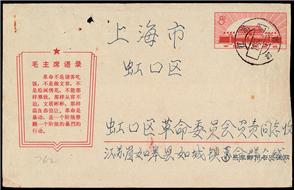 毛主席语录
革命不是请客吃
饭，不是做文章，不
是绘画绣花，不能那
样雅致，那样从容不
迫，文质彬彬，那样温
良恭俭让。革命是
暴动，是一个阶级推
翻一个阶级的暴烈
的行动。
上海市
虹口区
虹口区革命委员会负责同志收
江苏 如皋县如城镇
8分
762